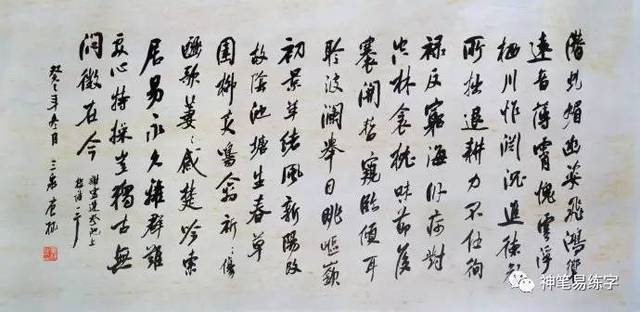 潜虬媚幽姿飛鴻響
遠音薄霄愧雲浮
栖川怍渊沉進德智
所拙退耕力不任徇
禄反窮海卧疴對
空林衾枕昧節候
褰開暫窺臨傾耳
聆波澜舉目眺嶇嶔
初景革緒風新陽改
故陰池塘生春草
園柳变鳴禽祈々傷
豳歌萋々感楚吟索
居易永久離群難
處心持操豈獨古無
闷徵在今
謝靈運登池上
楼詩一
年冬月三泉
神笔易练字